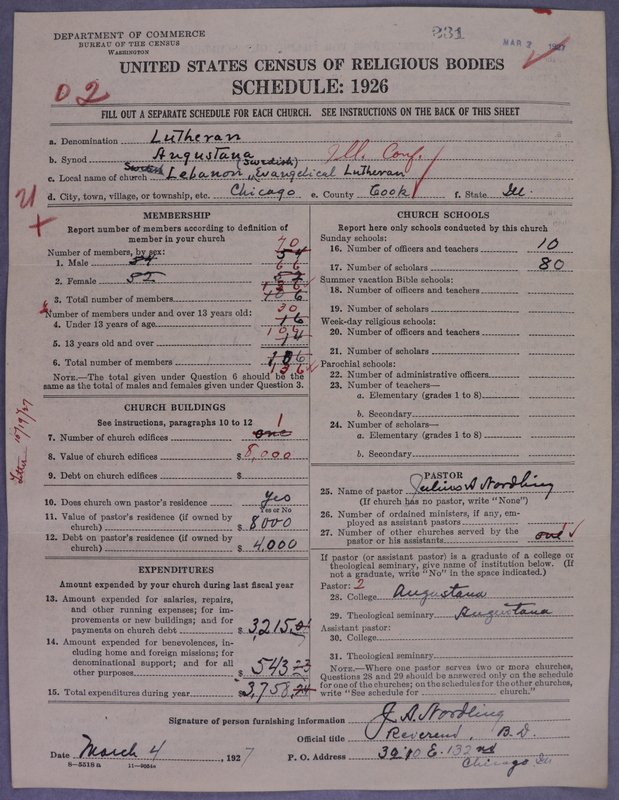 DEPARTMENT OF COMMERCE
BUREAU OF THE CENSUS
WASHINGTON
231
MAR 2 1927
UNITED STATES CENSUS OF RELIGIOUS BODIES
SCHEDULE: 1926
02
FILL OUT A SEPARATE SCHEDULE FOR EACH CHURCH. SEE INSTRUCTIONS ON THE BACK OF THIS SHEET
a. Denomination Lutheran
b. Synod Augustana (Swedish) Ill. Conf.
c. Local name of church Swedish Lebanon Evangelical Lutheran
d. City, town, village, or township, etc. Chicago e. County Cook f. State Ill.
MEMBERSHIP
Report number of members according to definition of
member in your church
Number of members, by sex:
1. Male 54 54 70
2. Female 52 52 66
3. Total number of members 106 136
Number of members under and over 13 years old:
4. Under 13 years of age 16 30
5. 13 years old and over 106
6. Total number of members 106 136
NOTE.—The total given under Question 6 should be the
same as the totals of males and females given under Question 3.
Letter 10/19/27
CHURCH BUILDINGS
See instructions, paragraphs 10 to 12
7. Number of church edifices one 1
8. Value of church edifices $ 8,000
9. Debt on church edifices $
10. Does church own pastor's residence yes
Yes or No
11. Value of pastor's residence (if owned by
church) $ 8000
12. Debt on pastor's residence (if owned by
church) $ 4,000
EXPENDITURES
Amount expended by your church during last fiscal year
13. Amount expended for salaries, repairs,
and other running expenses; for im-
provements or new buildings; and for
payments on church debt $ 3,215.01
14. Amount expended for benevolences, in-
cluding home and foreign missions; for
denominational support; and for all
other purposes $ 543.23
15. Total expenditures during year $ 3,758.24
CHURCH SCHOOLS
Report here only schools conducted by this church
Sunday schools:
16. Number of officers and teachers 10
17. Number of scholars 80
Summer vacation Bible schools:
18. Number of officers and teachers
19. Number of scholars
Week-day religious schools:
20. Number of officers and teachers
21. Number of scholars
Parochial schools:
22. Number of administrative officers
23. Number of teachers—
a. Elementary (grades 1 to 8)
b. Secondary
24. Number of scholars—
a. Elementary (grades 1 to 8)
b. Secondary
PASTOR
25. Name of pastor Julius A Nordling
(If church has no pastor, write "None")
26. Number of ordained ministers, if any, em-
ployed as assistant pastors
27. Number of other churches served by the
pastor or his assistants one 1
If pastor (or assistant pastor) is a graduate of a college or
theological seminary, give name of institution below. (If
not a graduate, write "No" in the space indicated.)
Pastor: 2
28. College Augustana
29. Theological seminary Augustana
Assistant pastor:
30. College
31. Theological seminary
NOTE.—Where one pastor serves two or more churches,
Questions 28 and 29 should be answered only on the schedule
for one of the churches; on the schedules for the other churches,
write "See schedule for church."
Signature of person furnishing information J. A. Nordling
Official title Reverend, B. D.
Date March 4, 1927 P. O. Address 3210 E. 132nd
Chicago Ill
8—5518 a